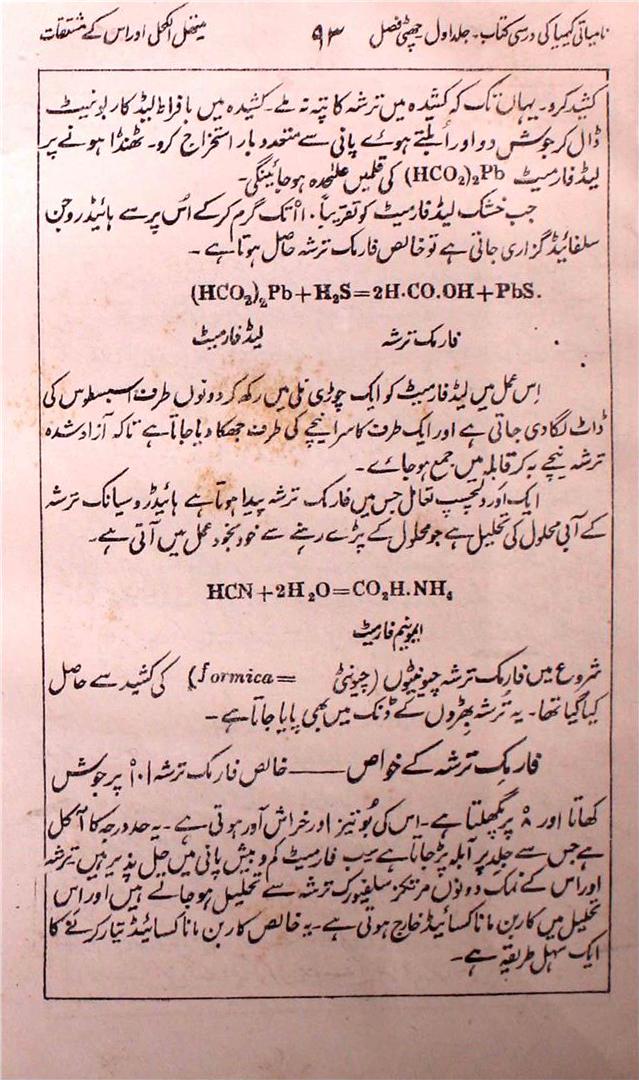 نامیاتی کیمیا کی درسی کتاب۔ جلد اول چھٹی فصل ۹۳ میتھل الکحل اور اس کے مشتقات
کشید کرو۔ یہاں تک کہ کشیدہ میں ترشہ کا پتہ نہ ملے۔ کشیدہ میں با فراط لیڈ کاربونیٹ
ڈال کر جوش دو اور اُبلتے ہوے پانی سے متعدد بار استخراج کرو۔ ٹھنڈا ہونے پر
لیڈ فارمیٹ (HCO₂)₂Pb کی قلمیں علٰحدہ ہو جائینگی۔
جب خشک لیڈ فارمیٹ کو تقریباً ۱۱۰° تک گرم کر کے اُس پر سے ہائیڈروجن
سلفائیڈ گزاری جاتی ہے تو خالص فارمک ترشہ حاصل ہوتا ہے۔
(HCO₂)₂Pb+H₂S=2H·CO.OH+PbS.
فارمک ترشہ لیڈ فارمیٹ
اِس عمل میں لیڈ فارمیٹ کو ایک چوڑی نلی میں رکھ کر دونوں طرف اسبسطوس کی
ڈاٹ لگا دی جاتی ہے اور ایک طرف کا سرا نیچے کی طرف جھکا دیا جاتا ہے تاکہ آزاد شدہ
ترشہ نیچے بہ کر قابلہ میں جمع ہو جائے۔
ایک اور دلچسپ تعامل جس میں فارمک ترشہ پیدا ہوتا ہے ہائیڈروسیانک ترشہ
کے آبی محلول کی تحلیل ہے جو محلول کے پڑے رہنے سے خود بخود عمل میں آتی ہے۔
HCN+2H₂O=CO₂H.NH₄
ایمونیم فارمیٹ
شروع میں فارمک ترشہ چیونٹیوں (چیونٹی =formica) کی کشید سے حاصل
کیا گیا تھا۔ یہ ترشہ بِھڑوں کے ڈنک میں بھی پایا جاتا ہے۔
فارمک ترشہ کے خواص —— خالص فارمک ترشہ ۱۰۱° پر جوش
کھاتا اور ۸° پر پگھلتا ہے۔ اس کی بُو تیز اور خراش آور ہوتی ہے۔ یہ حد درجہ کا آکل
ہے جس سے جلد پر آبلہ پڑ جاتا ہے سب فارمیٹ کم و بیش پانی میں حل پذیر ہیں ترشہ
اور اس کے نمک دونوں مرتکز سلفیورک ترشہ سے تحلیل ہو جاتے ہیں اور اس
تحلیل میں کاربن مانا کسائیڈ خارج ہوتی ہے۔ یہ خالص کاربن مانا کسائیڈ تیار کرنے کا
ایک سہل طریقہ ہے۔